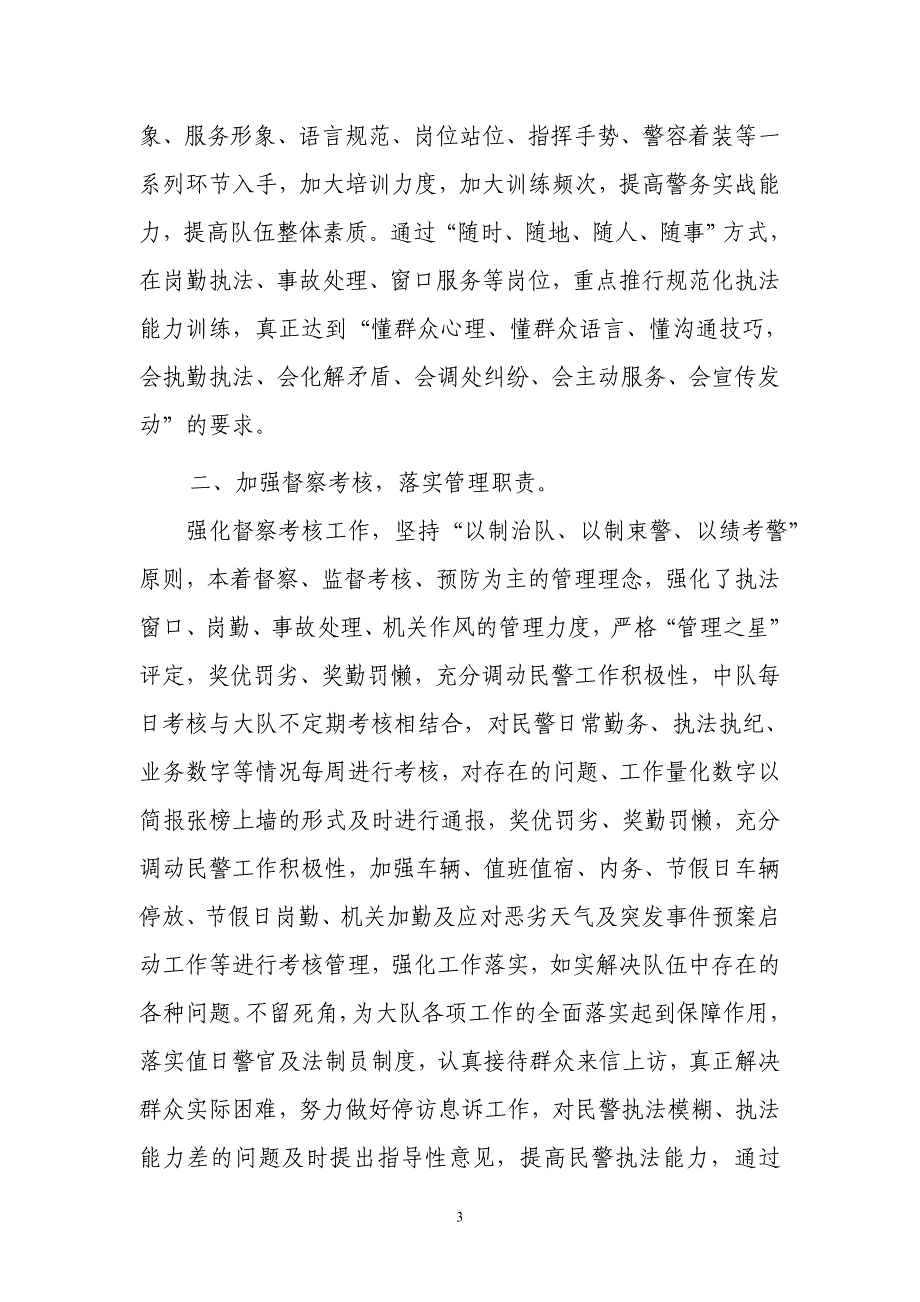 象、服务形象、语言规范、岗位站位、指挥手势、警容着装等一
系列环节入手，加大培训力度，加大训练频次，提高警务实战能
力，提高队伍整体素质。通过“随时、随地、随人、随事”方式，
在岗勤执法、事故处理、窗口服务等岗位，重点推行规范化执法
能力训练，真正达到“懂群众心理、懂群众语言、懂沟通技巧，
会执勤执法、会化解矛盾、会调处纠纷、会主动服务、会宣传发
动”的要求。
二、加强督察考核，落实管理职责。
强化督察考核工作，坚持“以制治队、以制束警、以绩考警”
原则，本着督察、监督考核、预防为主的管理理念，强化了执法
窗口、岗勤、事故处理、机关作风的管理力度，严格“管理之星”
评定，奖优罚劣、奖勤罚懒，充分调动民警工作积极性，中队每
日考核与大队不定期考核相结合，对民警日常勤务、执法执纪、
业务数字等情况每周进行考核，对存在的问题、工作量化数字以
简报张榜上墙的形式及时进行通报，奖优罚劣、奖勤罚懒，充分
调动民警工作积极性，加强车辆、值班值宿、内务、节假日车辆
停放、节假日岗勤、机关加勤及应对恶劣天气及突发事件预案启
动工作等进行考核管理，强化工作落实，如实解决队伍中存在的
各种问题。不留死角，为大队各项工作的全面落实起到保障作用，
落实值日警官及法制员制度，认真接待群众来信上访，真正解决
群众实际困难，努力做好停访息诉工作，对民警执法模糊、执法
能力差的问题及时提出指导性意见，提高民警执法能力，通过
3